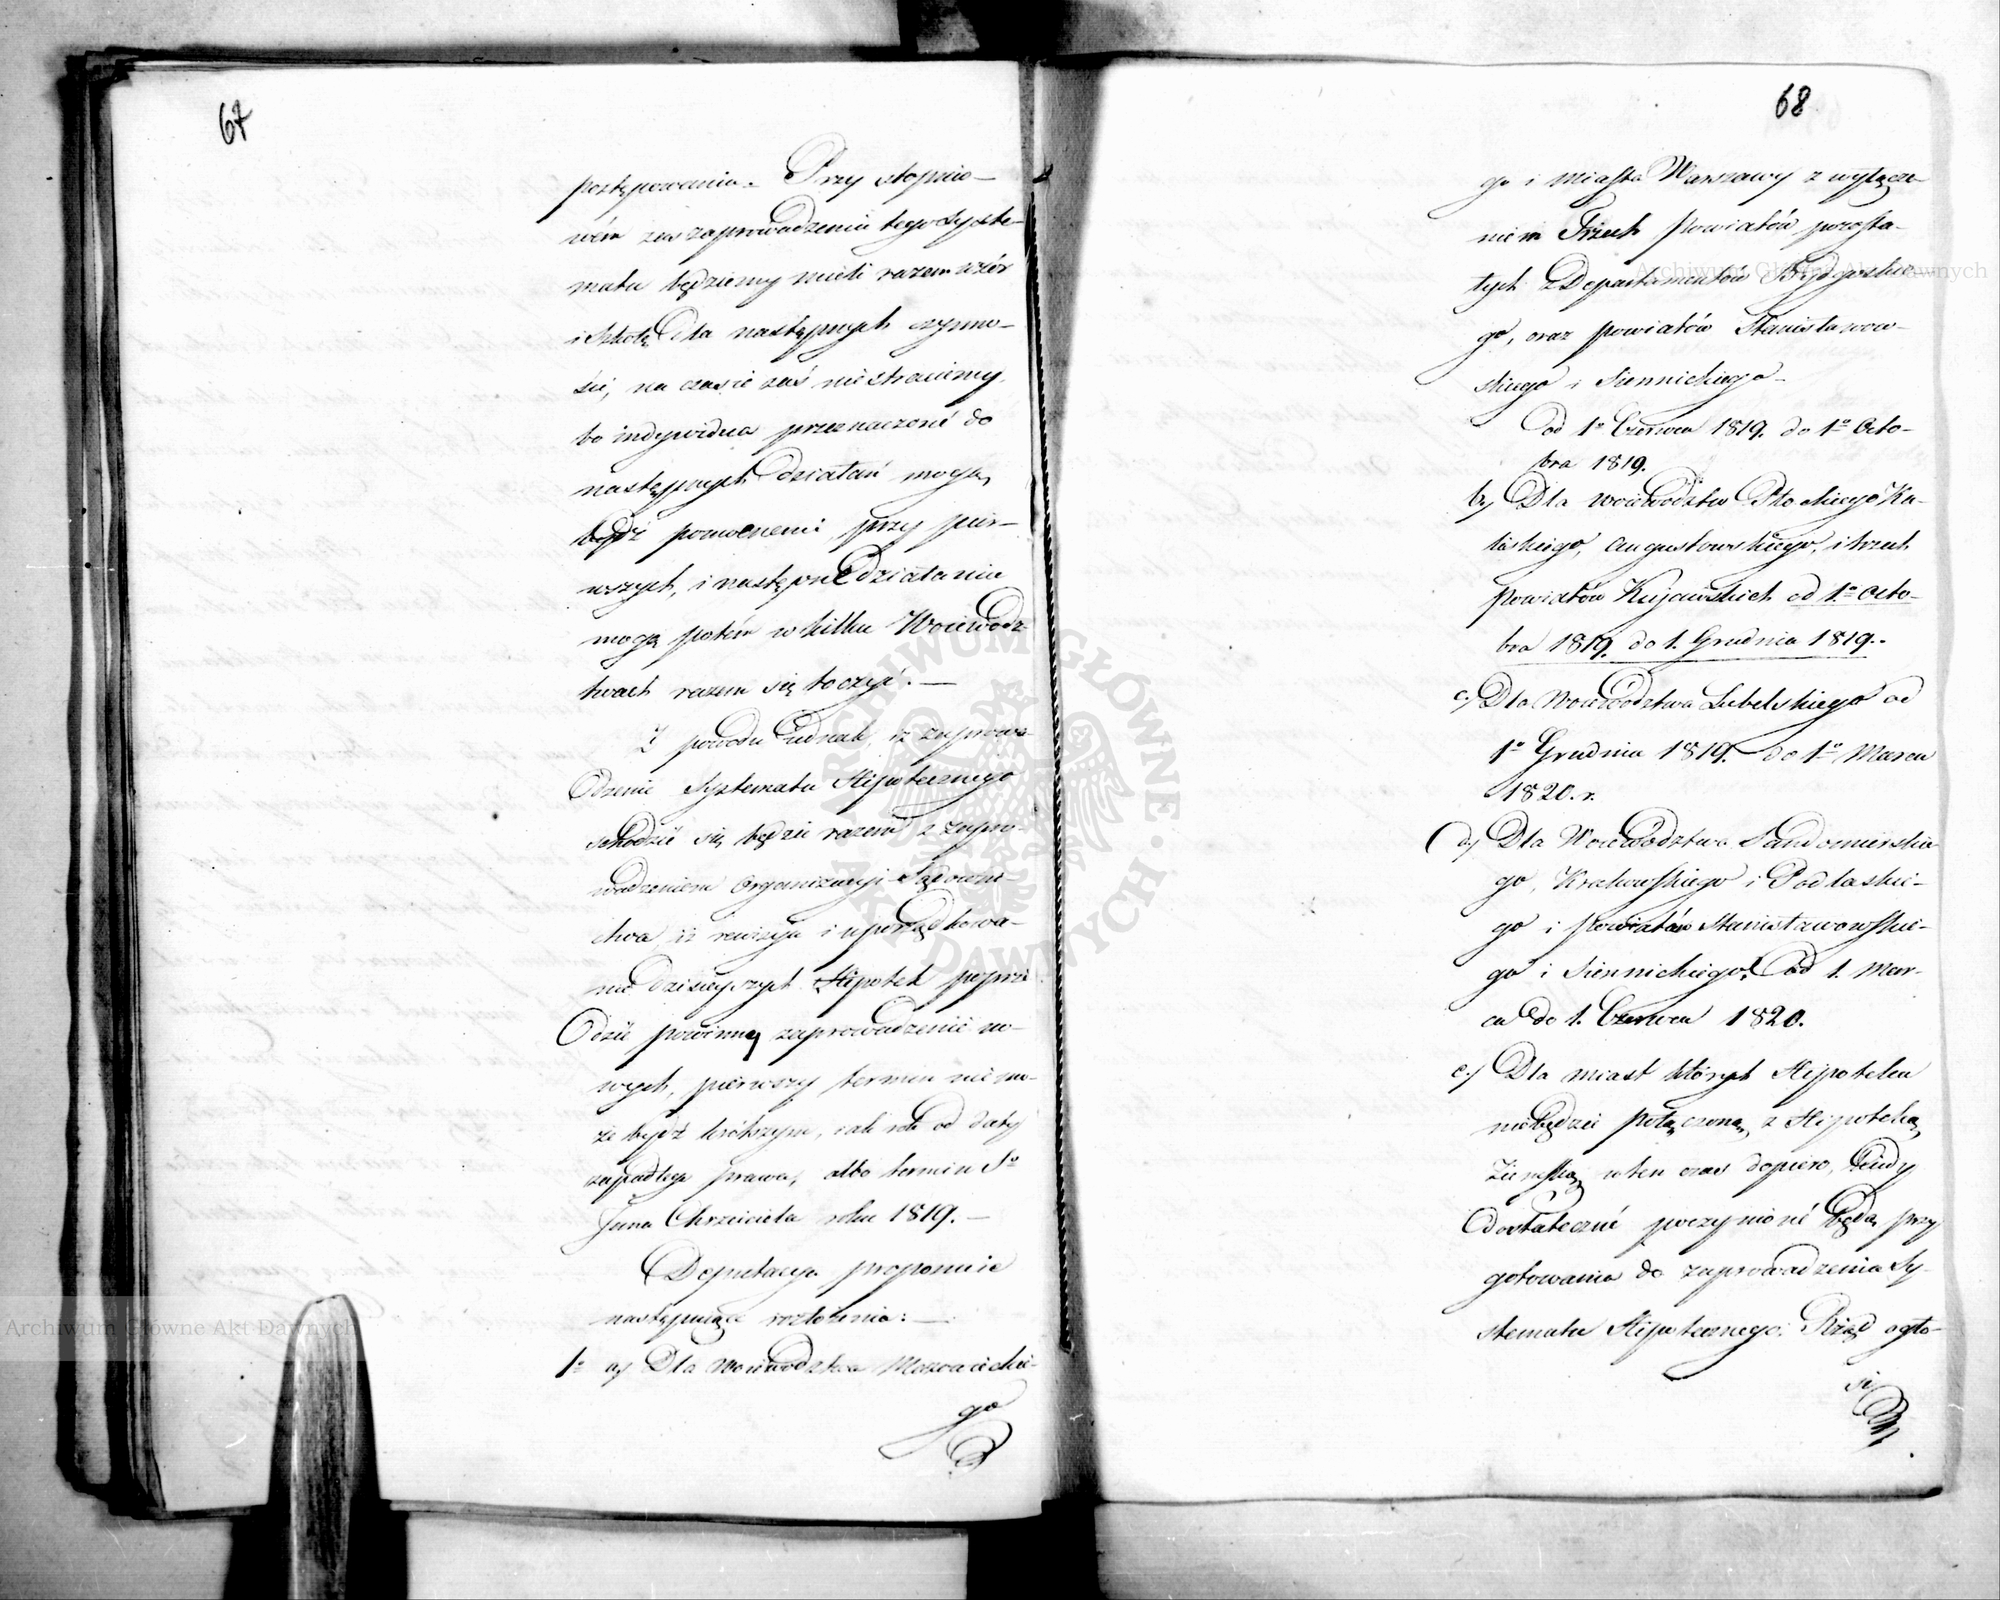 67
postępowania. Przy stopnio-
wém zaś zaprowadzeniu tego Syste-
matu będziemy mieli razem wzór
i Szkołę dla następnych czynno-
ści, na czasie zaś nie stracimy,
bo indywidua przeznaczone do
następnych działań mogą
bydź pomocnemi przy pier-
wszych, i następne działania
mogą potém w kilku Woiewódz-
twach razem się toczyć. —
Z powodu iednak, iż zaprowa-
dzenie Systematu Hipotecznego
schodzić się będzie razem z zapro-
wadzeniem Organizacyi Sądowni-
ctwa, iż rewizya i uporządkowa-
nie dzisieyszych Hipotek poprze-
dzić powinny zaprowadzenie no-
wych, pierwszy termin nie mo-
że bydź krótszym, iak rok od daty
zapadłego prawa, albo termin Sgo
Jana Chrzciciela roku 1819. —
Deputacya proponuie
następuiące rozłożenia: —
1o a) Dla Woiewództwa Mazowieckie-
go
68
go i miasta Warszawy z wyłącze-
niem Trzech Powiatów, pozosta-
łych z Departamentów Bydgoskie-
go, oraz powiatów Stanisławow-
skiego i Siennickiego —
Od 1o Czerwca 1819. do 1o Octo-
bra 1819.
b) Dla woiewództw Płockiego Ka-
liskiego, Augustowskiego, i trzech
powiatów Kujawskich od 1.o Octo-
bra 1819. do 1. Grudnia 1819.
c) Dla Woiewództwa Lubelskiego od
1o Grudnia 1819. do 1o Marca
1820. r.
d) Dla Woiewództwa Sandomirskie-
go, Krakowskiego i Podlaskie-
go i powiatów Stanisławowskie-
go i Siennickiego Od 1. Mar-
ca do 1. Czerwca 1820.
e) Dla miast których Hipoteka
niebędzie połączoną z Hipoteką
Ziemską, w ten czas dopiero, kiedy
dostateczne poczynione będą przy
gotowania do zaprowadzenia Sy-
stematu Hipotecznego. Rząd ogło-
si
Archiwum Główne Akt Dawnych
Archiwum Główne Akt Dawnych
ARCHIWUM GŁÓWNE AKT DAWNYCH